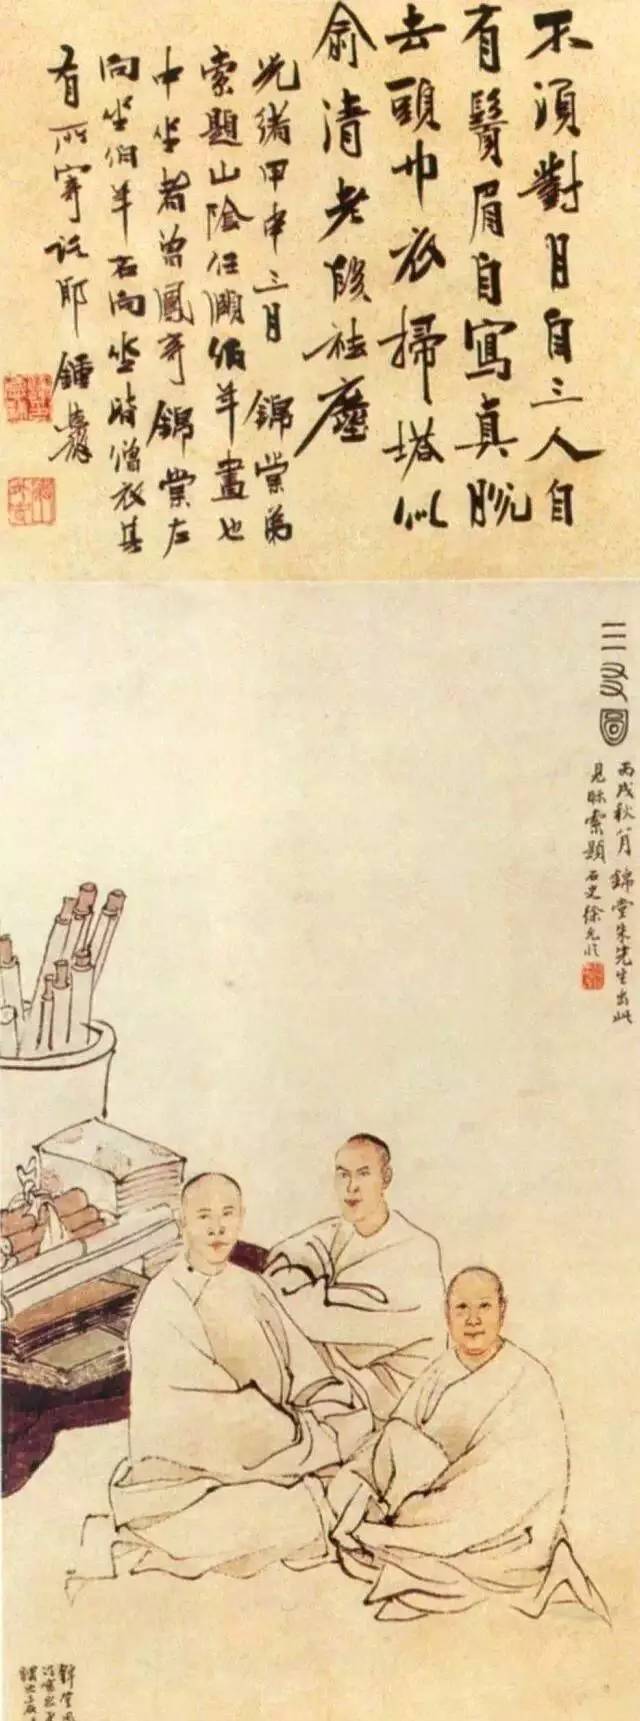 不須對月自三人自
有鬚眉自寫真脫
去頭巾衣掃塔似
俞清老陵祛塵
光緒甲申三月 錦棠弟
索題山陰任頤伯年畫也
中坐者曾鳳寄錦棠左
向坐伯年右向坐時僧衣其
有所寄託耶 鍾
三友圖
丙戌秋八月 錦堂朱先生出此
見眎索題 石史徐允臨